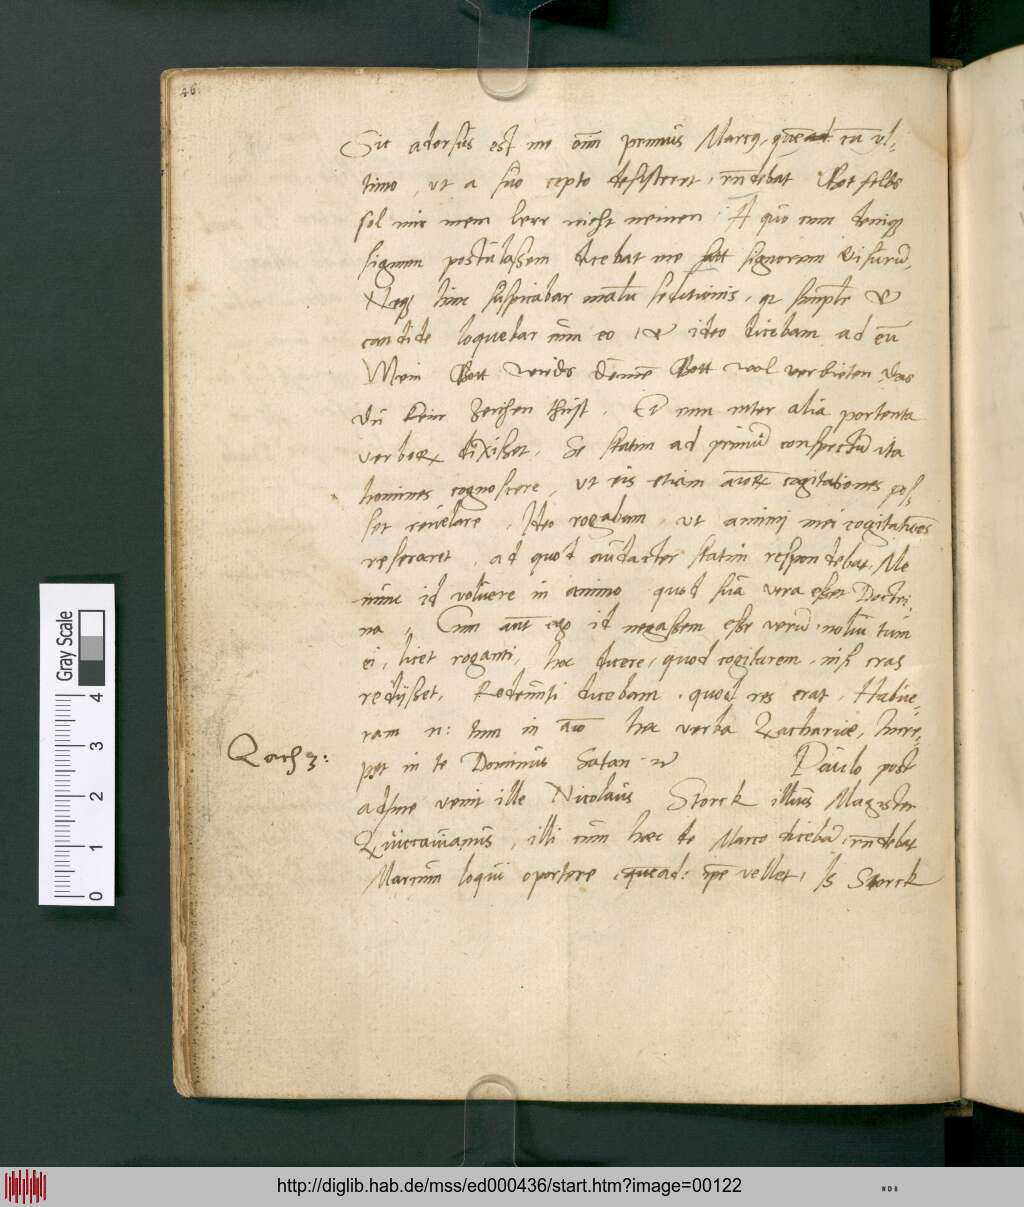 46.
Sic adorsus est me oīm primus Marcus, quē ad. cū ul-
timo, ut a suo cepto desisteret, rn̄debat Got selbs
sol mir mein lere nicht nemen: A quo cum deniqȝ
signum postulassem dicebat me sat signorum visurū,
Neqȝ tunc suspicabar malū seditionis, qꝛ simplr̄ et
candide loquebar cum eo, et ideo dicebam ad eū
Mein Gott wirds deinē Gott wol verbieten, das
du kein Zeichen thust. Et cum inter alia portenta
verborꝝ dixisset, Se statim ad primū conspectū ita
homines cognoscere, ut eis etiam aīorꝝ cogitationes pos-
set revelare, Ideo rogabam, ut animi mei cogitatiōes
reseraret, ad quod audacter statim respondebat, Me
nunc id volvere in animo quod sua vera esset Doctri-
na, Cum aūt ego id negassem esse verū, nolui tum
ei, licet roganti, hoc dicere, quod cogitarem, nisi cras
redijsset, Redeunti dicebam, quod res erat, Habue-
ram n: tum in aīo haec verba Zachariae, Incre-
Zach 3:
pet in te Dominus Satan etc Paulo post
adhuc venit ille Nicolaus Storck illius Magister
Zwiccavianus, illi cum haec de Marco dicebā, rn̄debat
Marcum loqui oportere, quēad: ipse vellet, Is Storck
Gray Scale
0 1 2 3 4
http://diglib.hab.de/mss/ed000436/start.htm?image=00122